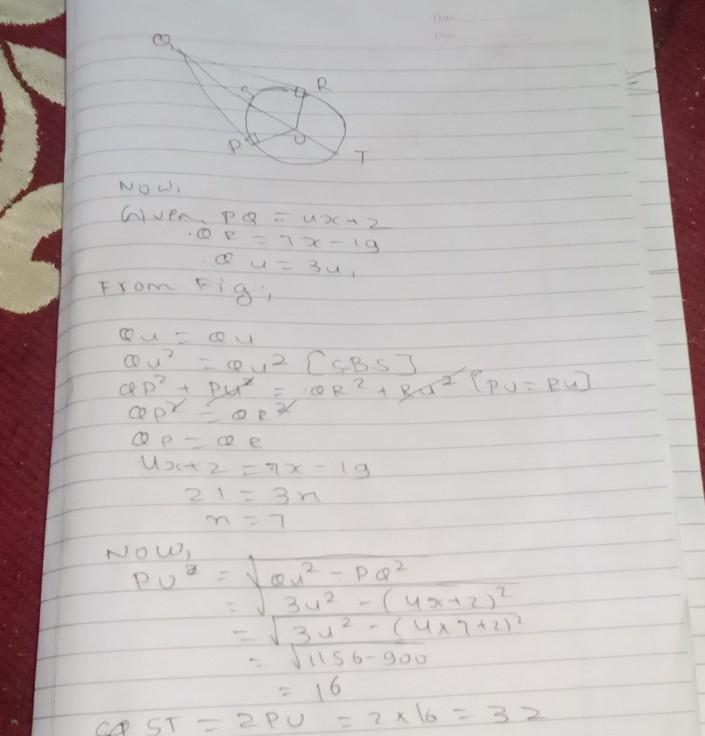 Q
S
R
P
U
T
Now,
Given, PQ = 4x+2
QR = 7x-19
QU = 34,
From Fig;
QU = QU
QU² = QU² [S.B.S]
QP² + PU² = QR² + RU² [PU = PU]
QP² = QR²
QP = QR
4x+2 = 7x-19
21 = 3x
x = 7
Now,
PU² = √QU² - PQ²
= √34² - (4x+2)²
= √34² - (4×7+2)²
= √1156-900
= 16
ST = 2PU = 2×16 = 32